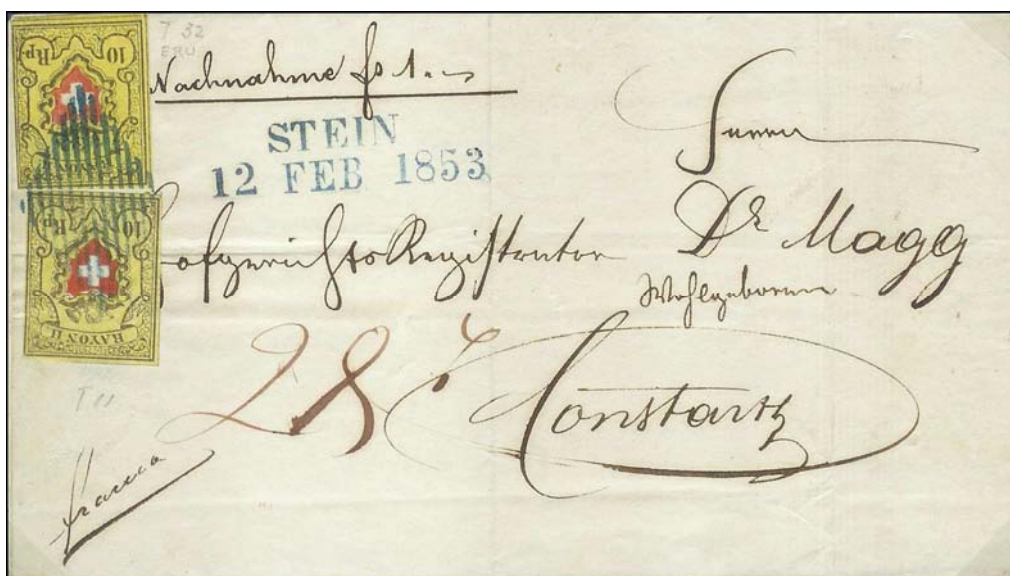 10 Rp.
T 32
ERU
Nachnahme fo 1.
STEIN
12 FEB 1853
Herrn
10 Rp.
Hofgerichts Registrator
Dr Magg
Wohlgeboren
RAYON II
28
Constanz
T 11
franco